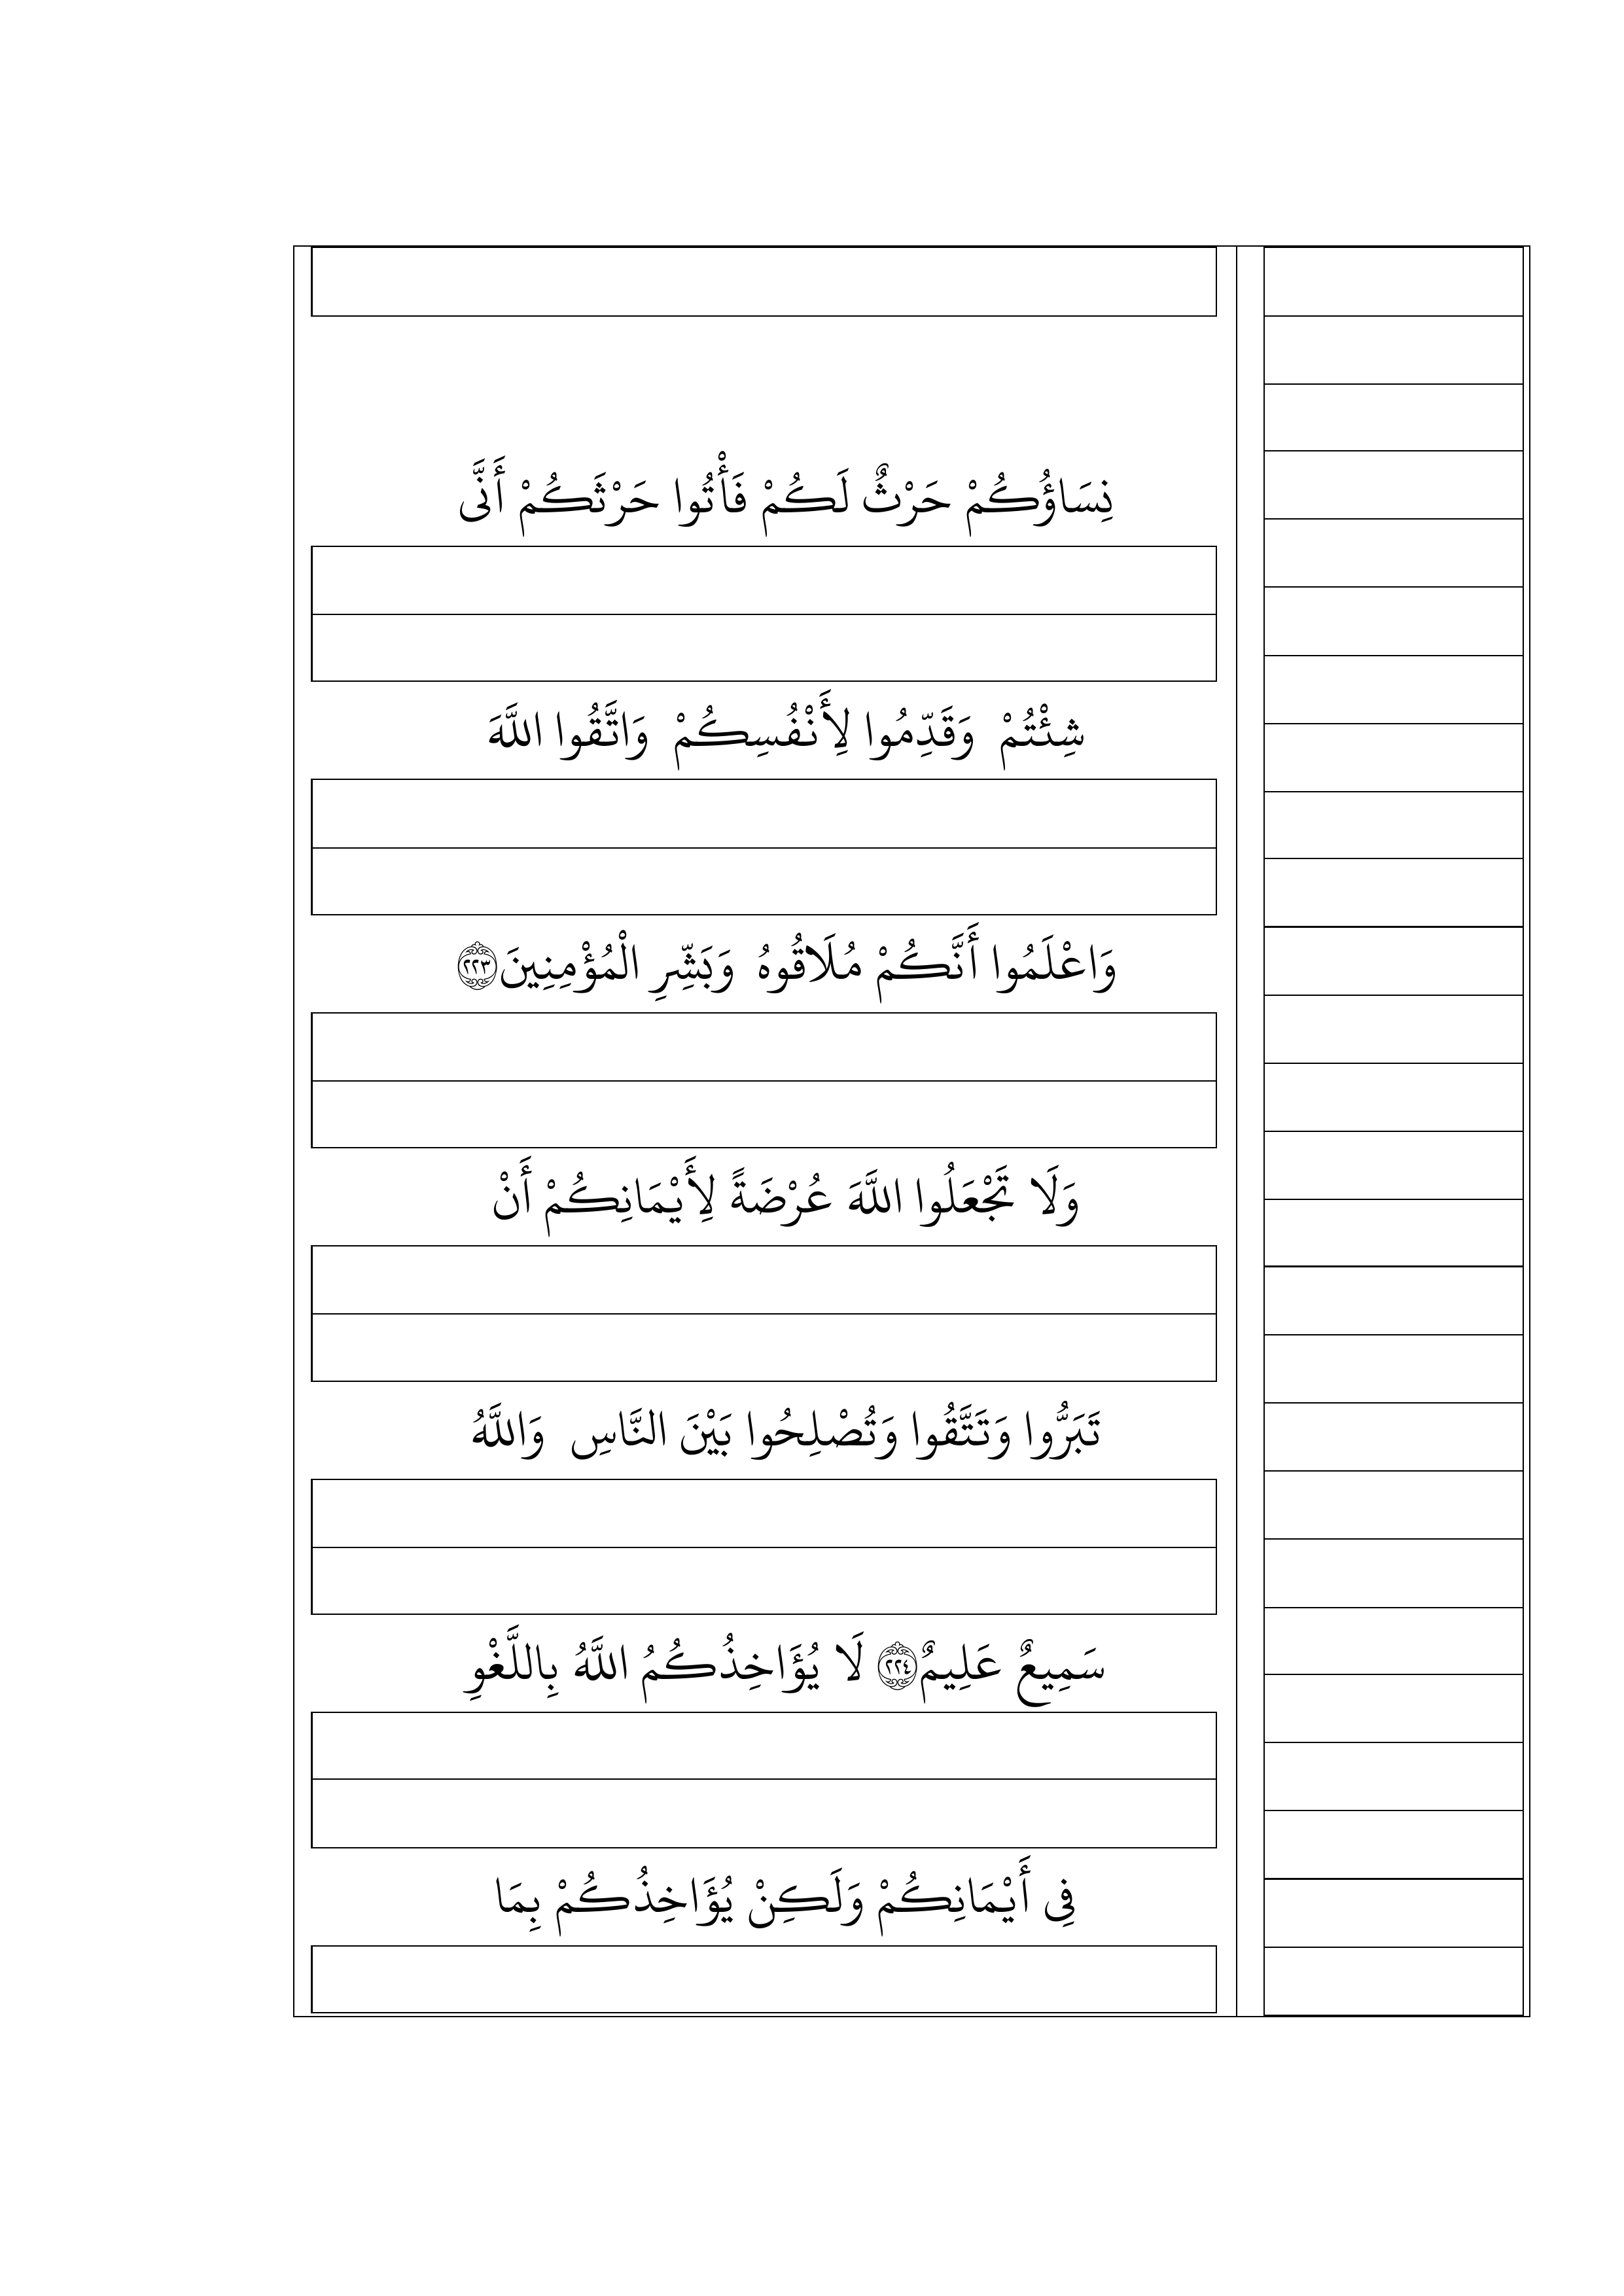 نِسَاؤُكُمْ حَرْثٌ لَكُمْ فَأْتُوا حَرْثَكُمْ أَنَّى
شِئْتُمْ وَقَدِّمُوا لِأَنْفُسِكُمْ وَاتَّقُوا اللَّهَ
وَاعْلَمُوا أَنَّكُمْ مُلَاقُوهُ وَبَشِّرِ الْمُؤْمِنِينَ ٢٢٣
وَلَا تَجْعَلُوا اللَّهَ عُرْضَةً لِأَيْمَانِكُمْ أَنْ
تَبَرُّوا وَتَتَّقُوا وَتُصْلِحُوا بَيْنَ النَّاسِ وَاللَّهُ
سَمِيعٌ عَلِيمٌ ٢٢٤ لَا يُؤَاخِذُكُمُ اللَّهُ بِاللَّغْوِ
فِي أَيْمَانِكُمْ وَلَكِنْ يُؤَاخِذُكُمْ بِمَا